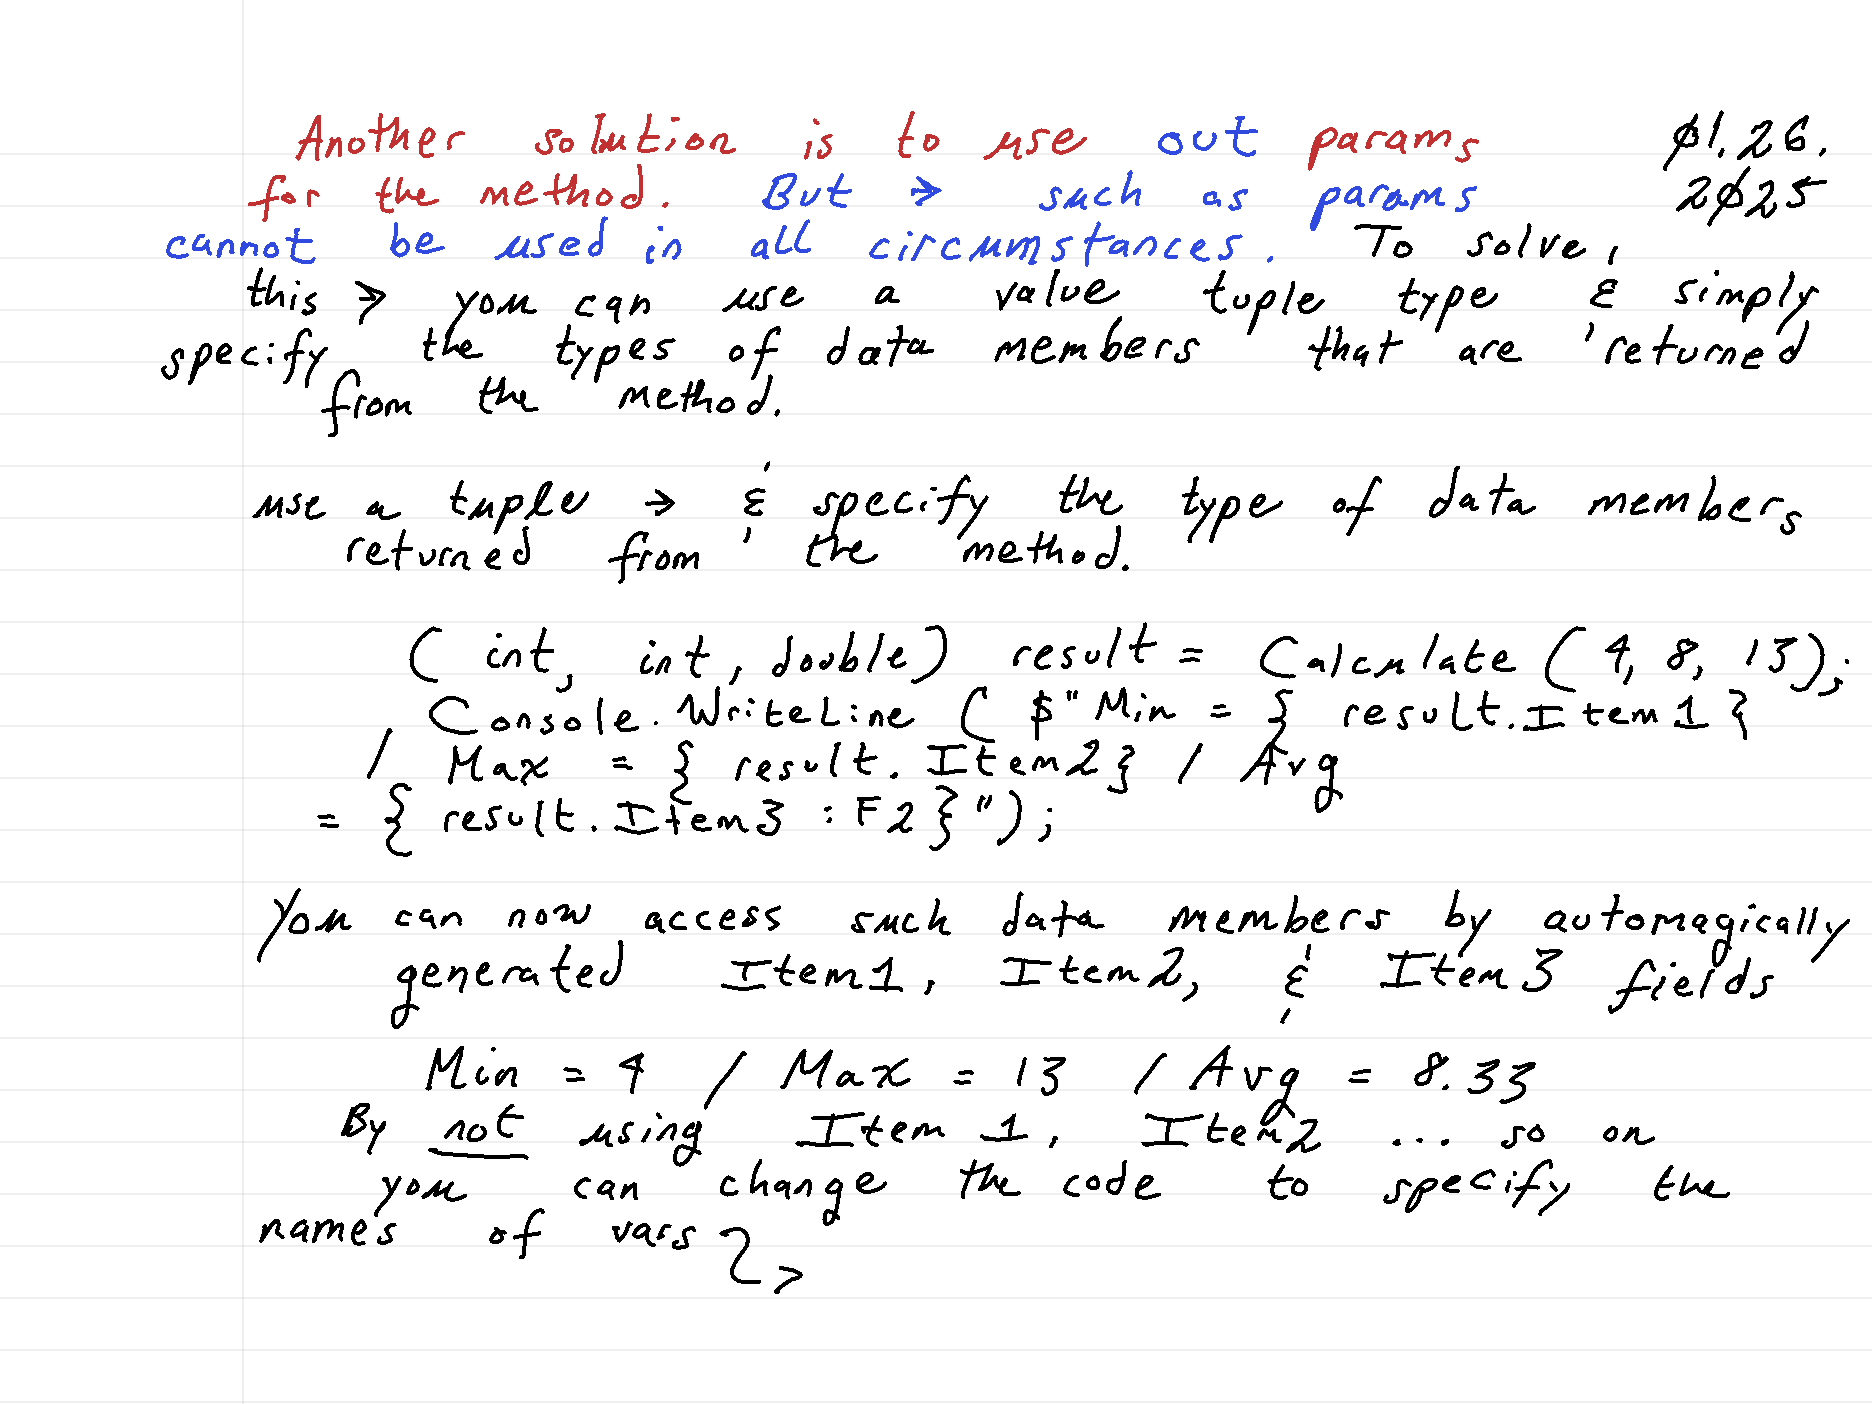 Another solution is to use out params
ø1.26.
for the method. But → such as params
2ø25
cannot be used in all circumstances. To solve,
this → you can use a value tuple type & simply
specify the types of data members that are returned
from the method.
use a tuple → & specify the type of data members
returned from the method.
( int, int, double) result = Calculate ( 4, 8, 13);
Console.WriteLine ( $"Min = { result.Item1 }
/ Max = { result.Item2} / Avg
= { result.Item3 :F2}");
You can now access such data members by automagically
generated Item1, Item2, & Item3 fields
Min = 4 / Max = 13 / Avg = 8.33
By not using Item 1, Item2 ... so on
you can change the code to specify the
names of vars